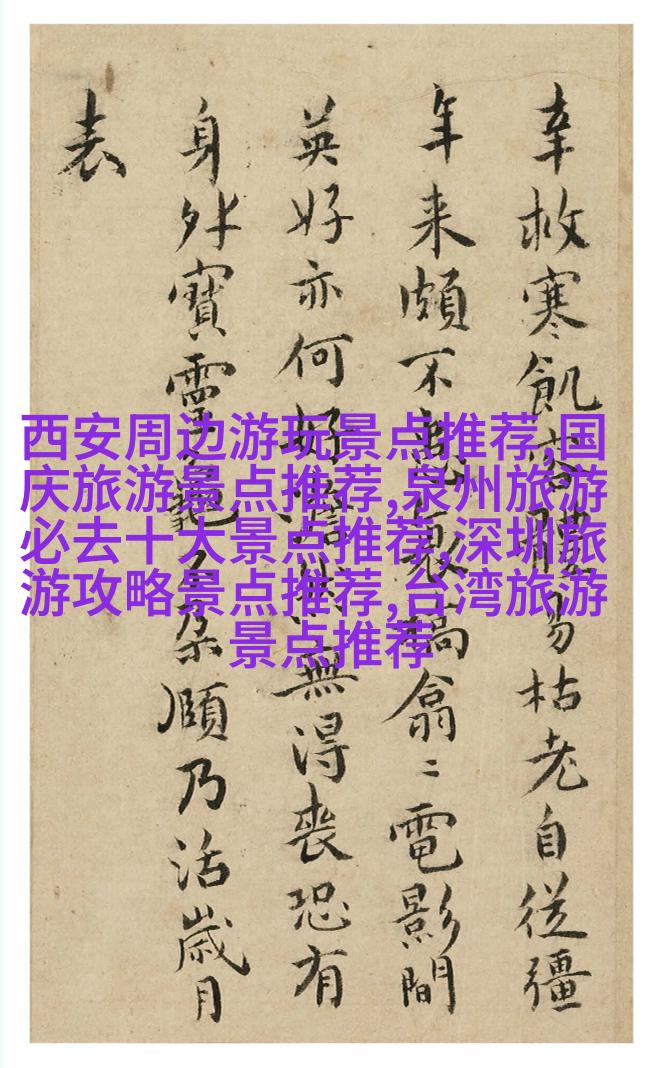 西安周边游玩景点推荐,国
庆旅游景点推荐,泉州旅游
必去十大景点推荐,深圳旅
游攻略景点推荐,台湾旅游
景点推荐
幸救寒飢體易枯老自従彊
年来頗不衰槁翕〻電影間
英好亦何好無得喪恐有
身外寶靈龜朶頤乃活歲月
表